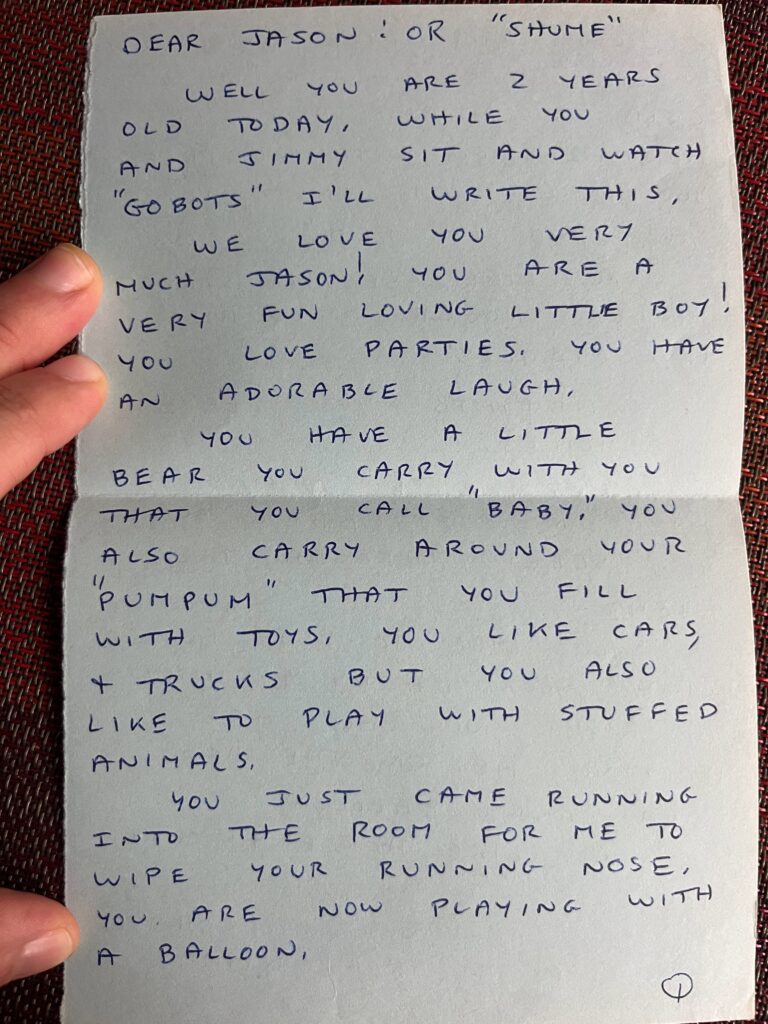 DEAR JASON! OR "SHUME"
WELL YOU ARE 2 YEARS
OLD TODAY, WHILE YOU
AND JIMMY SIT AND WATCH
"GOBOTS" I'LL WRITE THIS,
WE LOVE YOU VERY
MUCH JASON! YOU ARE A
VERY FUN LOVING LITTLE BOY!
YOU LOVE PARTIES. YOU HAVE
AN ADORABLE LAUGH,
YOU HAVE A LITTLE
BEAR YOU CARRY WITH YOU
THAT YOU CALL "BABY," YOU
ALSO CARRY AROUND YOUR
"PUMPUM" THAT YOU FILL
WITH TOYS, YOU LIKE CARS,
+ TRUCKS BUT YOU ALSO
LIKE TO PLAY WITH STUFFED
ANIMALS,
YOU JUST CAME RUNNING
INTO THE ROOM FOR ME TO
WIPE YOUR RUNNING NOSE,
YOU. ARE NOW PLAYING WITH
A BALLOON,
1